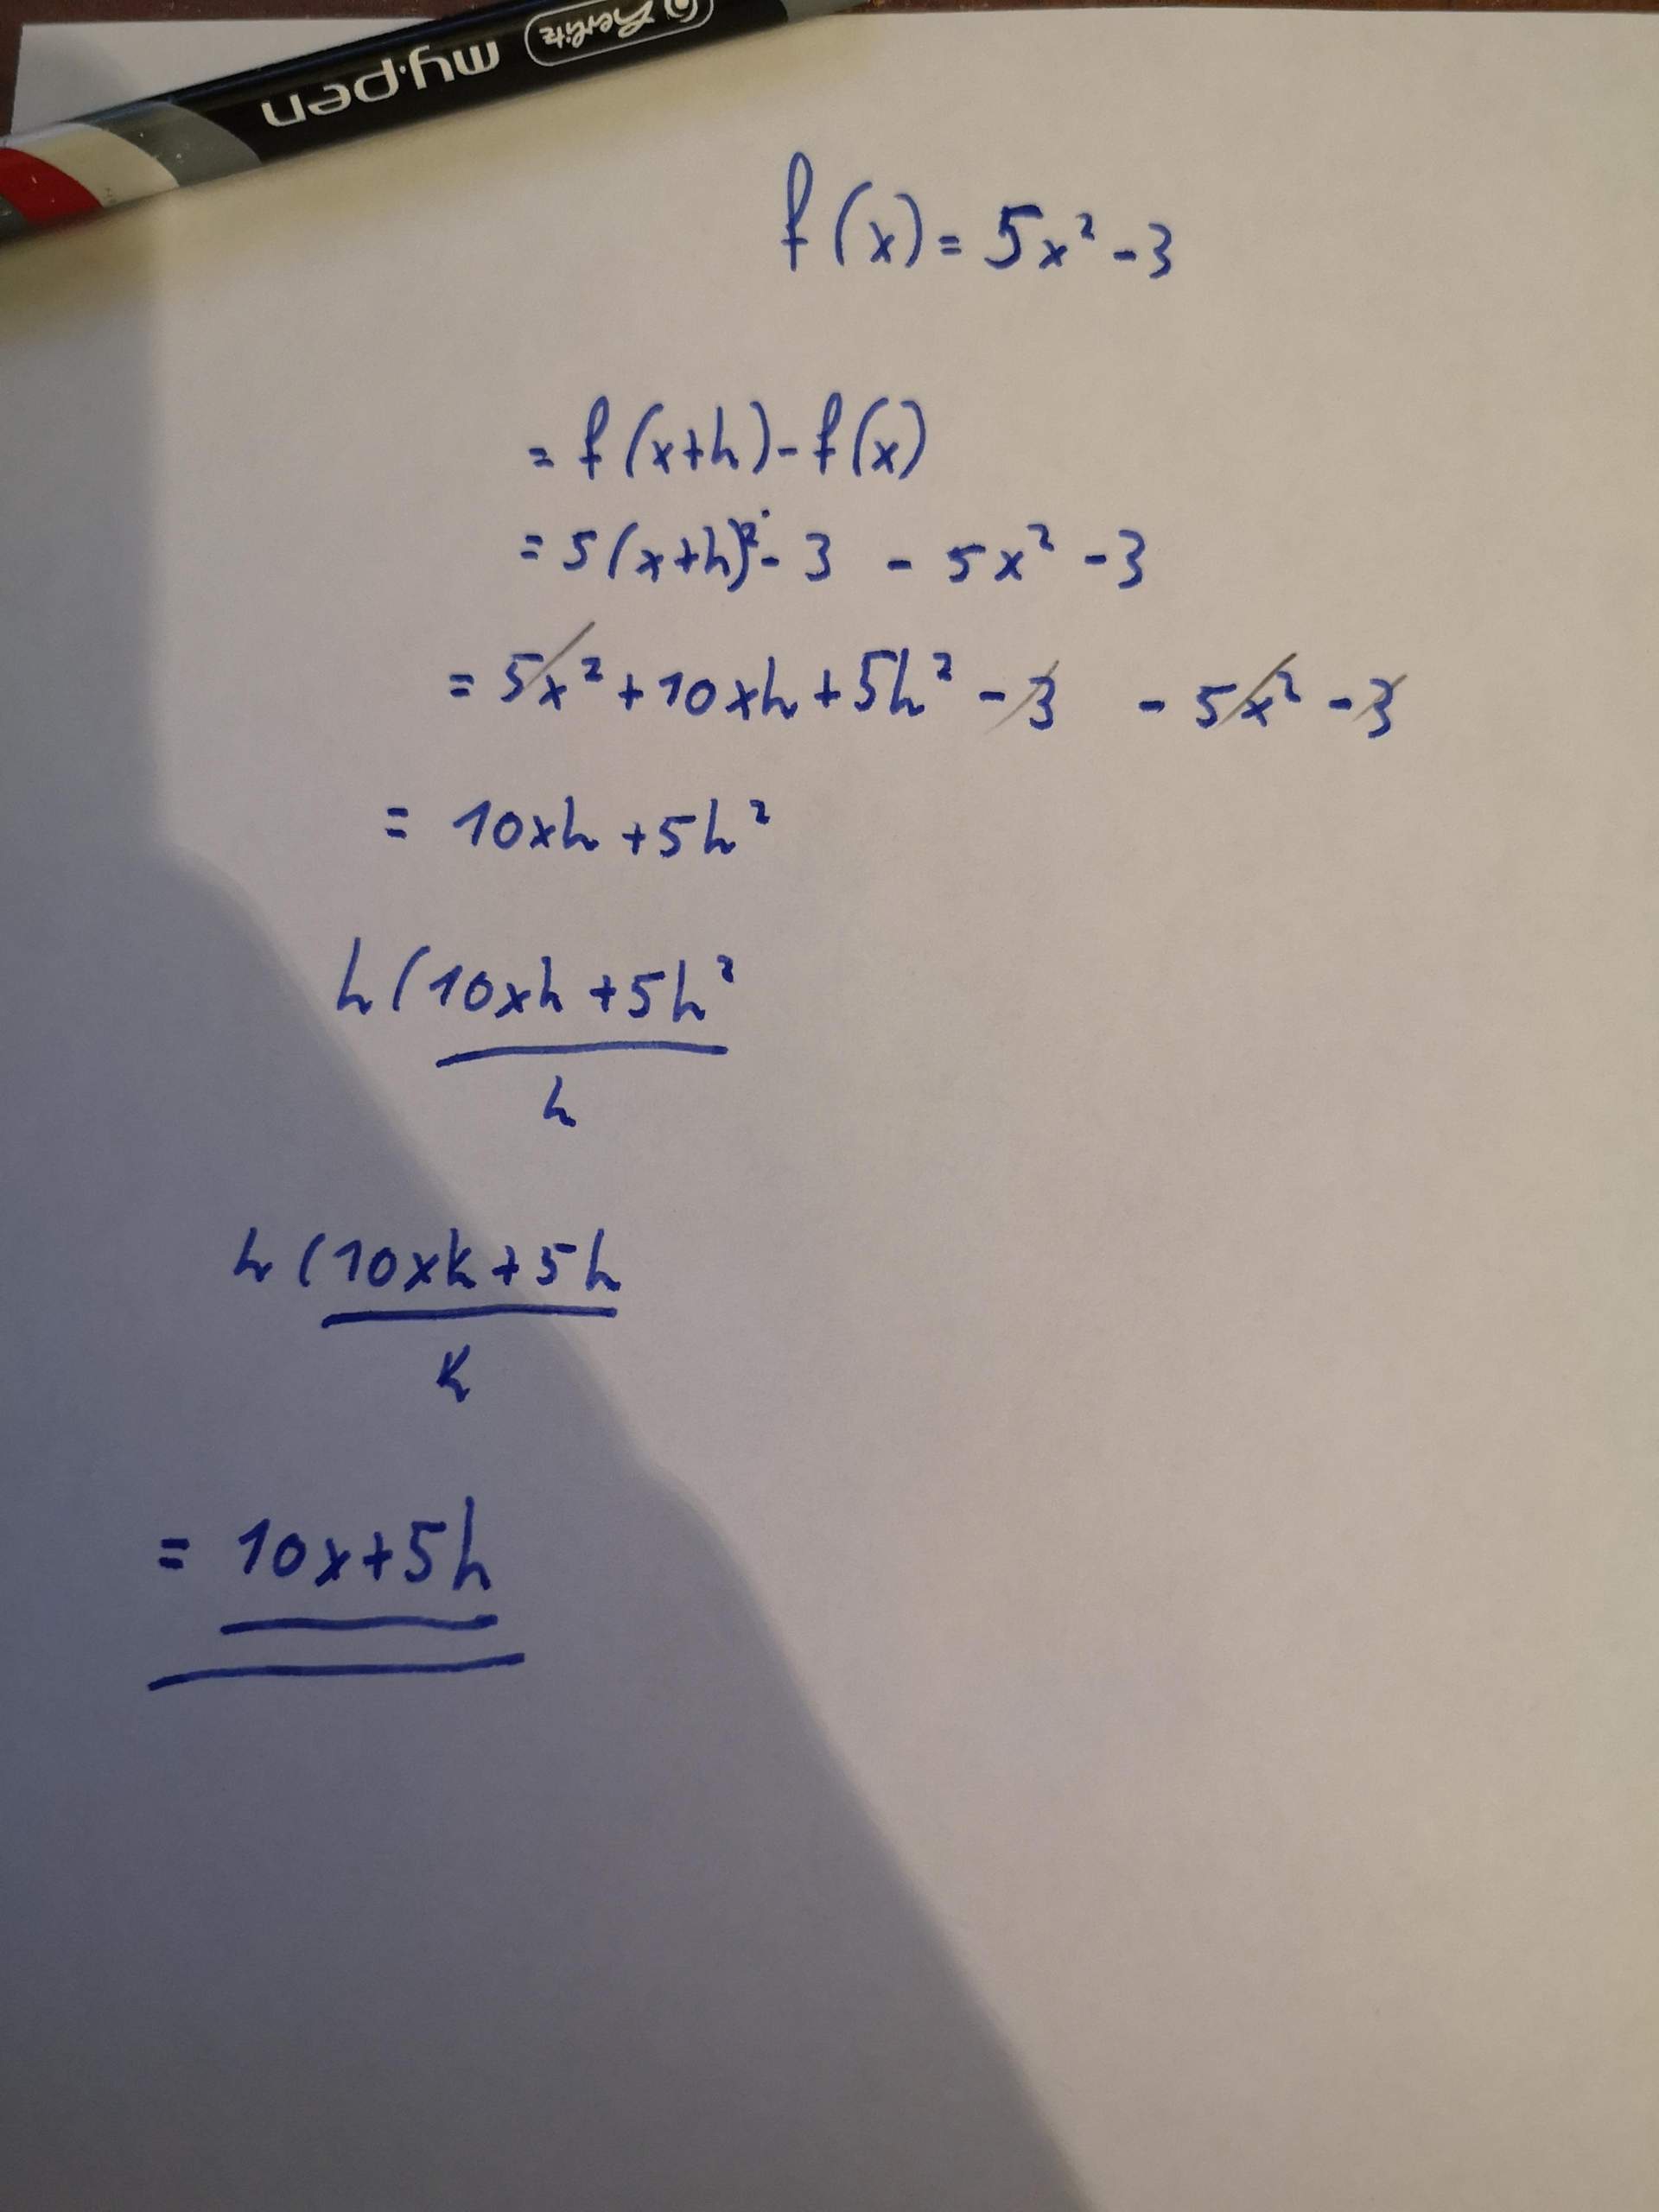 my.pen herlitz
f(x) = 5x² - 3
= f(x+h) - f(x)
= 5(x+h)² - 3 - 5x² - 3
= 5x² + 10xh + 5h² - 3 - 5x² - 3
= 10xh + 5h²
h(10xh + 5h²
h
h(10xh + 5h
h
= 10x + 5h